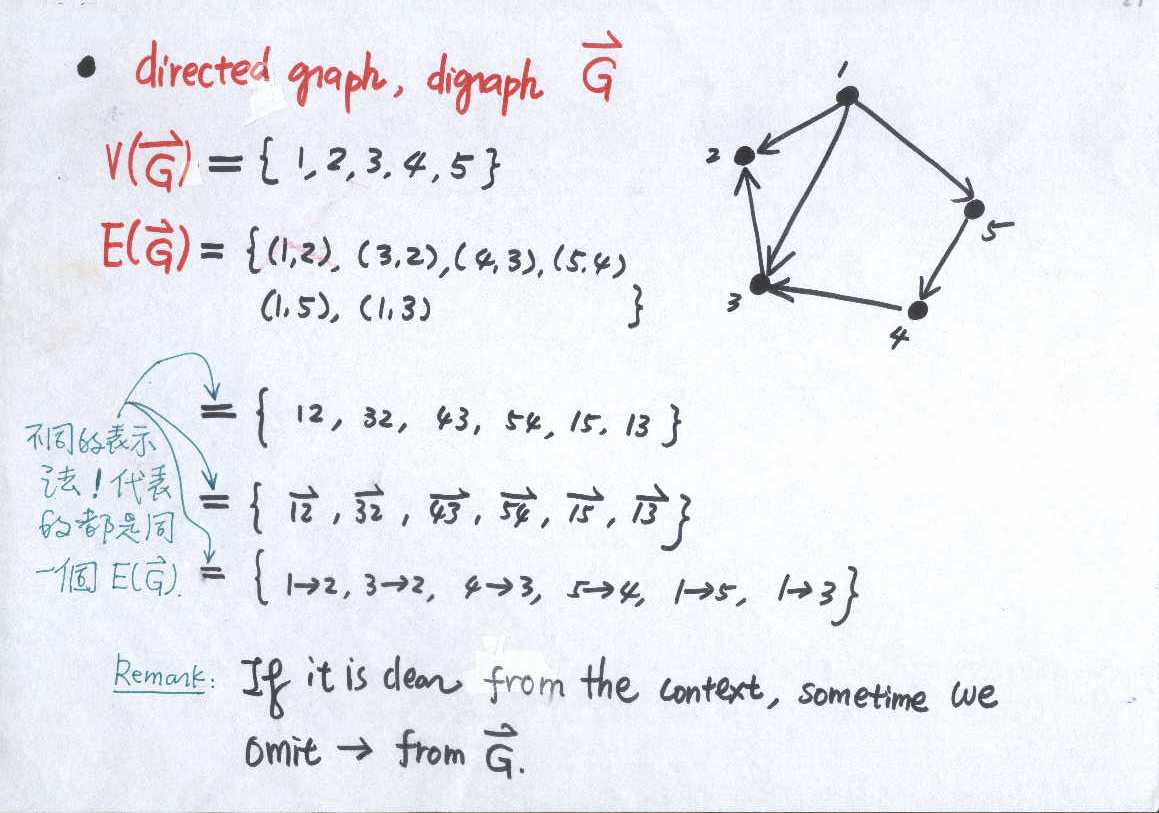 • directed graph, digraph $\vec{G}$
V($\vec{G}$) = { 1, 2, 3, 4, 5 }
E($\vec{G}$) = { (1,2), (3,2), (4,3), (5.4)
(1,5), (1,3) }
= { 12, 32, 43, 54, 15. 13 }
= { $\vec{12}$, $\vec{32}$, $\vec{43}$, $\vec{54}$, $\vec{15}$, $\vec{13}$ }
= { 1→2, 3→2, 4→3, 5→4, 1→5, 1→3 }
不同的表示
法！代表
的都是同
一個 E($\vec{G}$).
Remark: If it is clear from the context, sometime we
omit → from $\vec{G}$.
1
2
5
3
4